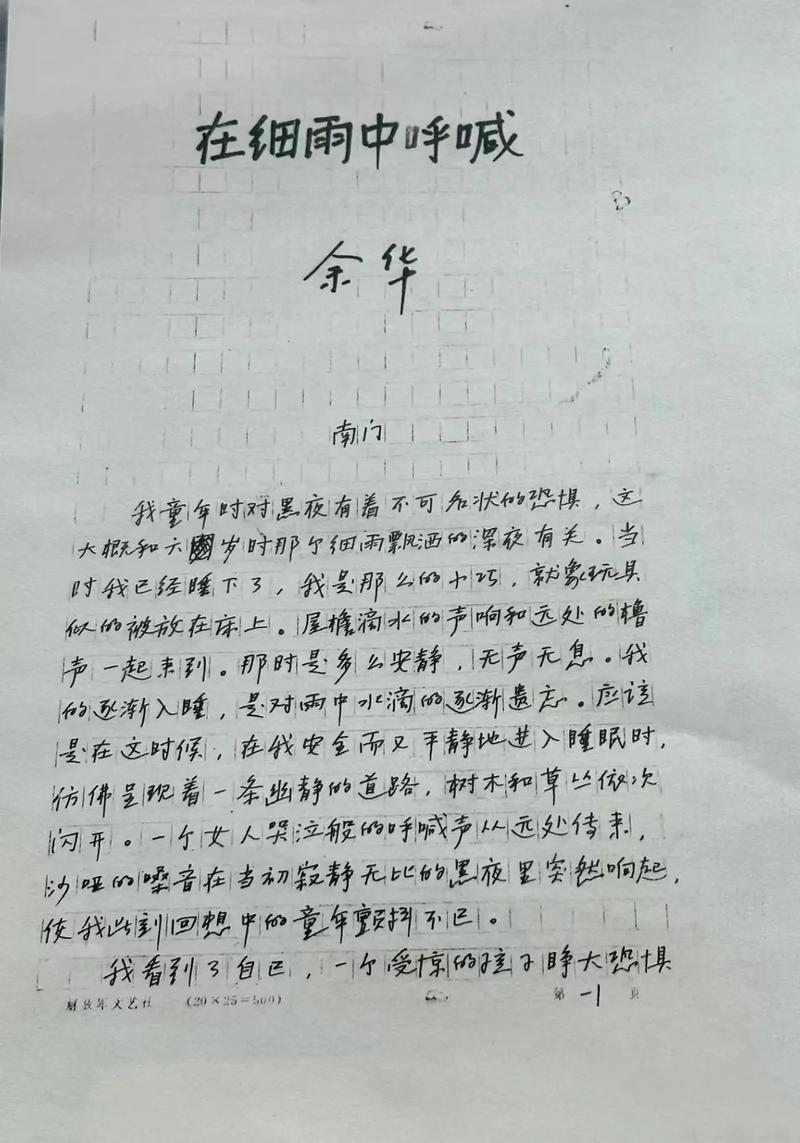 在细雨中呼喊
余华
南门
我童年时对黑夜有着不可名状的恐惧，这
大概和六岁时那个细雨飘洒的深夜有关。当
时我已经睡下了，我是那么的小巧，就象玩具
似的被放在床上。屋檐滴水的声响和远处的橹
声一起来到。那时是多么安静，无声无息。我
的逐渐入睡，是对雨中水滴的逐渐遗忘。应该
是在这时候，在我安全而又平静地进入睡眠时，
仿佛呈现着一条幽静的道路，树木和草丛依次
闪开。一个女人哭泣般的呼喊声从远处传来，
沙哑的嗓音在当初寂静无比的黑夜里突然响起，
使我此刻回想中的童年颤抖不已。
我看到了自己，一个受惊的孩子睁大恐惧
文艺社 (20×25=500) 第 1 页